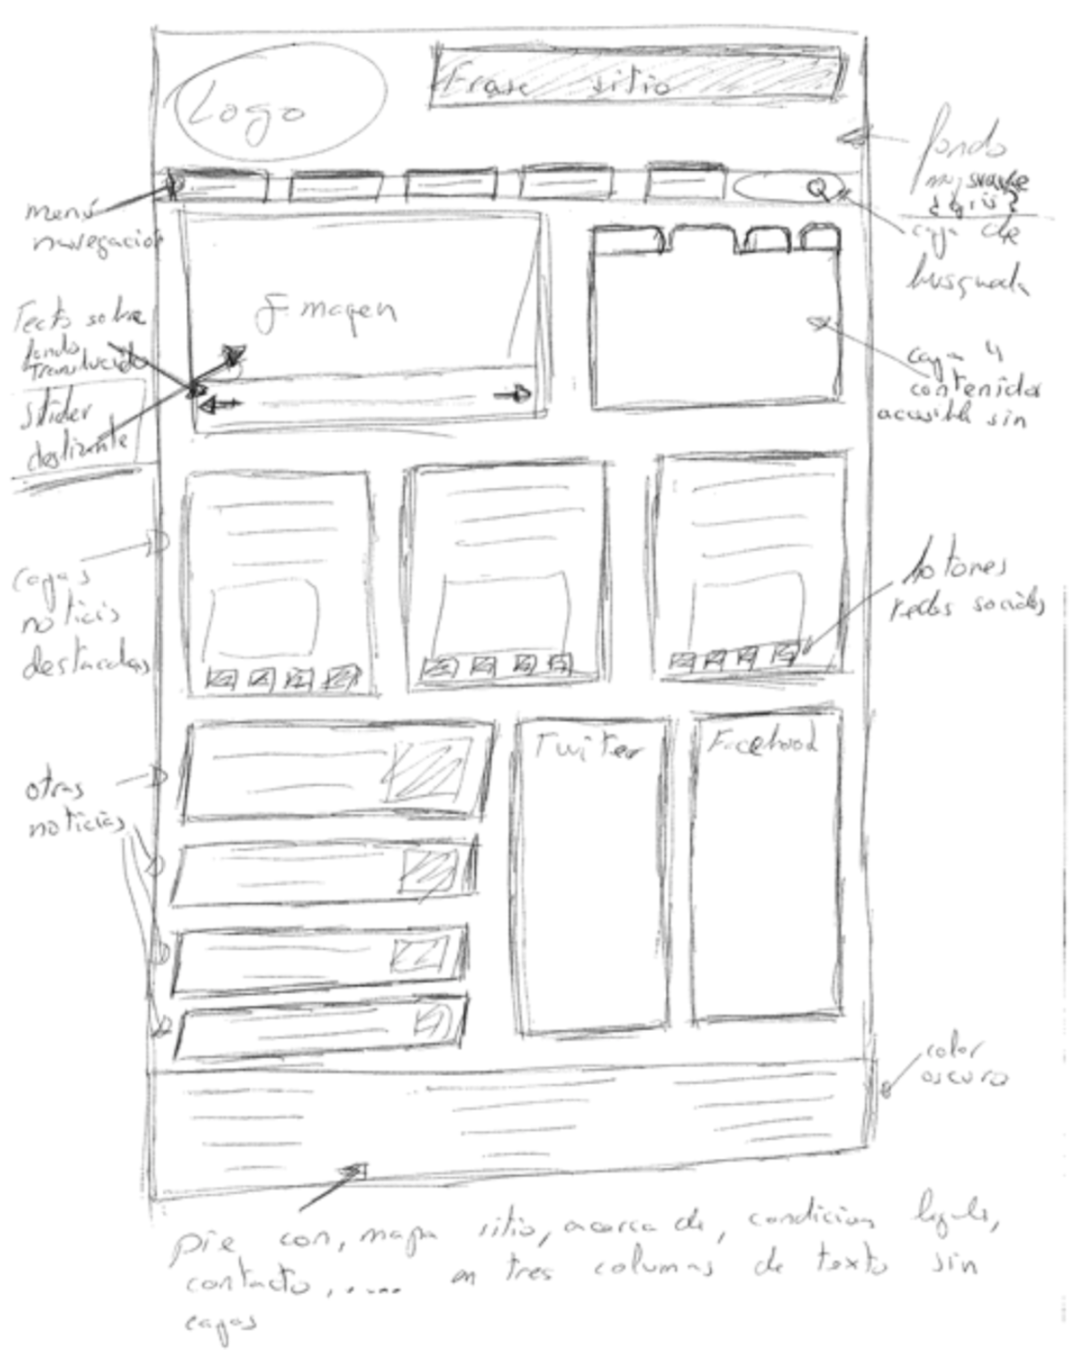 Logo
Frase sitio
fondo
muy suave
¿gris?
menú
navegación
caja de
busqueda
Imagen
Texto sobre
fondo
translucido
Slider
deslizante
caja 4
contenidos
accesible sin
cajas
noticis
destacadas
botones
redes sociales
otras
noticias
Twitter
Facebook
color
oscuro
pie con, mapa sitio, acerca de, condicion legals,
contacto, ..... en tres columnas de texto sin
cajas